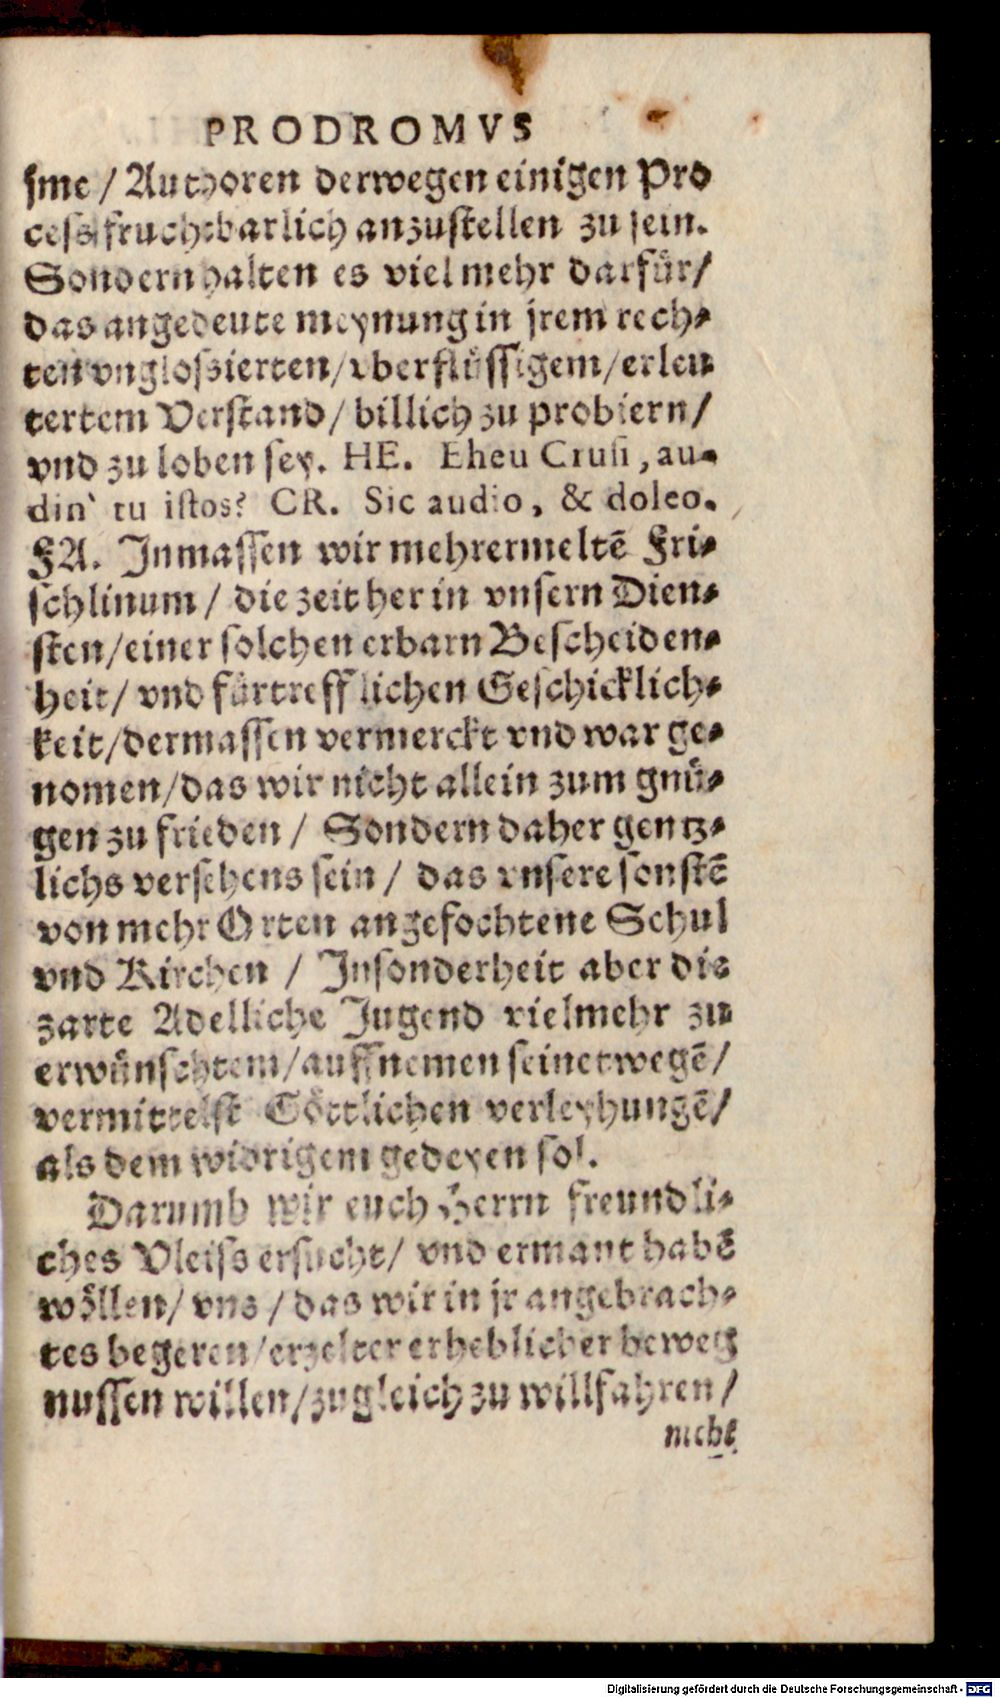 PRODROMVS
sme / Authoren derwegen einigen Pro
cess fruchtbarlich anzustellen zu sein.
Sondern halten es viel mehr darfür/
das angedeute meynung in jrem rech-
ten vnglossierten/vberflüssigem/erleu
tertem Verstand/ billich zu probiern/
vnd zu loben sey. HE. Eheu Crusi, au-
din` tu istos? CR. Sic audio, & doleo.
FA. Inmassen wir mehrermeltē Fri-
schlinum / die zeit her in vnsern Dien-
sten/einer solchen erbarn Bescheiden-
heit/ vnd fürtrefflichen Geschicklich-
keit/dermassen vermerckt vnd war ge-
nomen/das wir nicht allein zum gnü-
gen zu frieden / Sondern daher gentz-
lichs versehens sein / das vnsere sonstē
von mehr Orten angefochtene Schul
vnd Kirchen / Insonderheit aber die
zarte Adelliche Jugend vielmehr zu
erwünschtem/auffnemen seinetwegē/
vermittelst Göttlichen verleyhungē/
als dem widrigem gedeyen sol.
Darumb wir euch Herrn freundli-
ches Vleiss ersucht/ vnd ermant habē
wöllen/ vns / das wir in jr angebrach-
tes begeren/erzelter erheblicher beweg
nussen willen/zugleich zu willfahren/
nicht
Digitalisierung gefördert durch die Deutsche Forschungsgemeinschaft - DFG